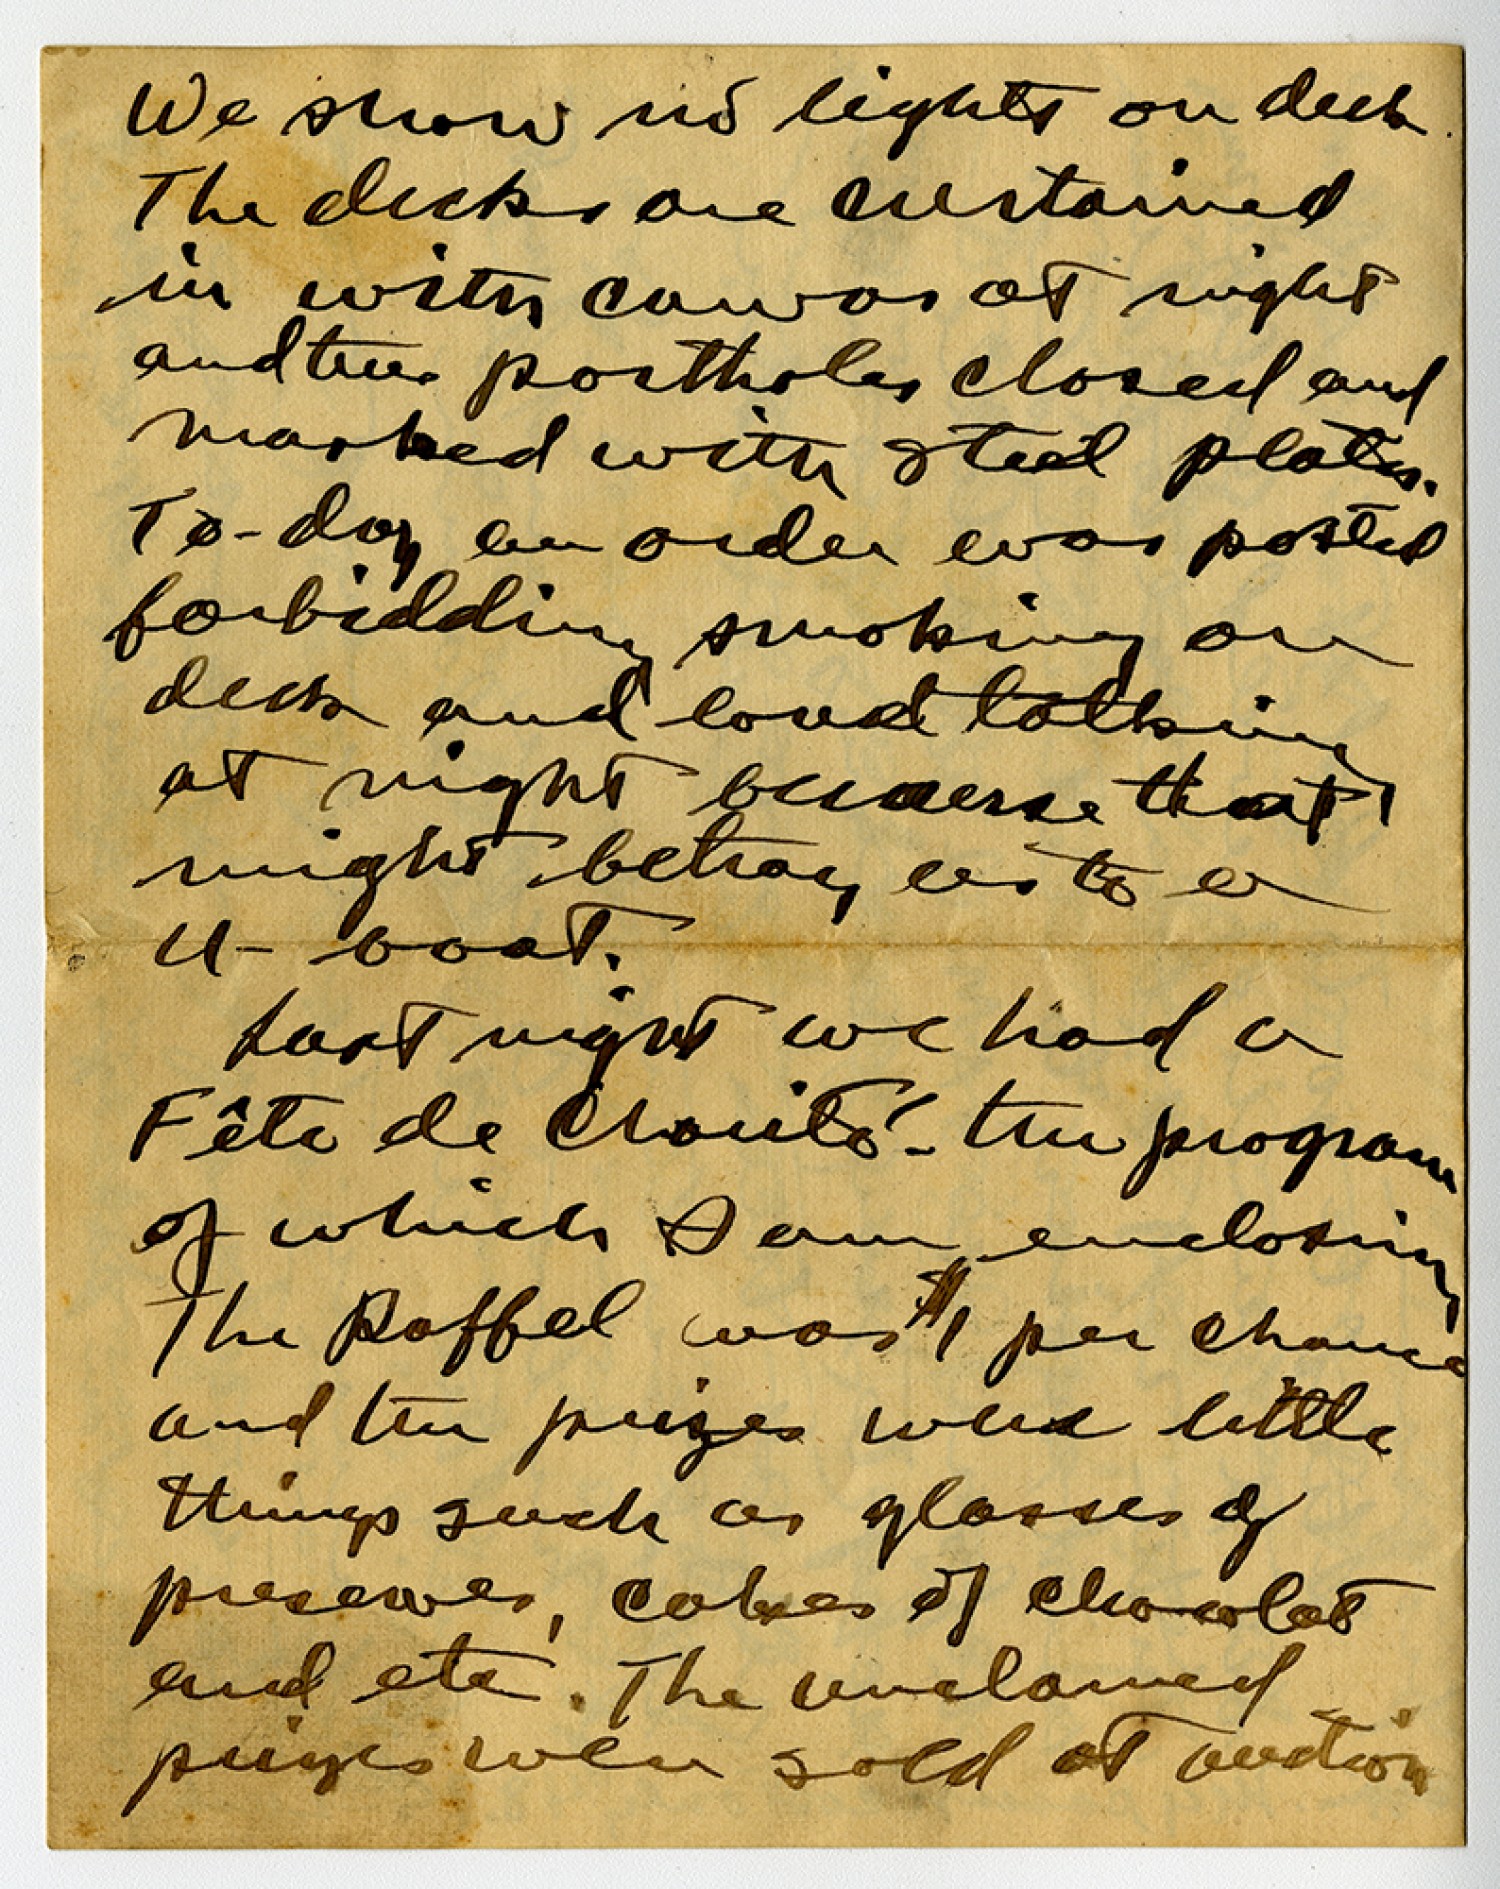 We show no lights on deck.
The decks are curtained
in with canvas at night
and the portholes closed and
masked with steel plates.
To-day an order was posted
forbidding smoking on
deck and loud talking
at night because that
might betray us to a
U-boat.
Last night we had a
Fête de Charité - the program
of which I am enclosing
The Raffel was $1 per chance
and the prizes were little
things such as glasses of
preserves, cakes of chocolat
and etc. The unclaimed
prizes were sold at auction